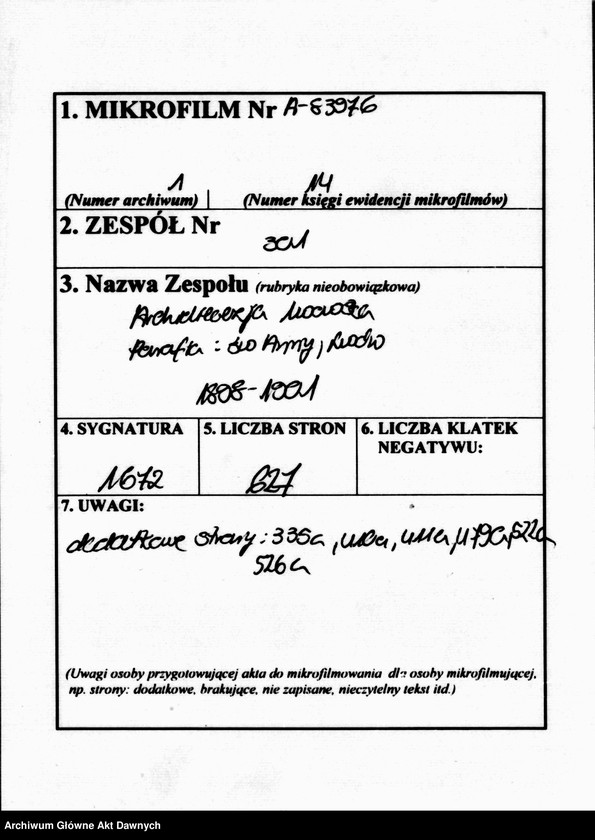 1. MIKROFILM Nr A-83976
1 14
(Numer archiwum) (Numer księgi ewidencji mikrofilmów)
2. ZESPÓŁ Nr
301
3. Nazwa Zespołu (rubryka nieobowiązkowa)
Archidiecezja Lwowska
Parafia: św Anny, Lwów
1898-1901
4. SYGNATURA 5. LICZBA STRON 6. LICZBA KLATEK
NEGATYWU:
1672 627
7. UWAGI:
dodatkowe strony: 335a, 410a, 411a, 479a, 522a
526a
(Uwagi osoby przygotowującej akta do mikrofilmowania dla osoby mikrofilmującej,
np. strony: dodatkowe, brakujące, nie zapisane, nieczytelny tekst itd.)
Archiwum Główne Akt Dawnych